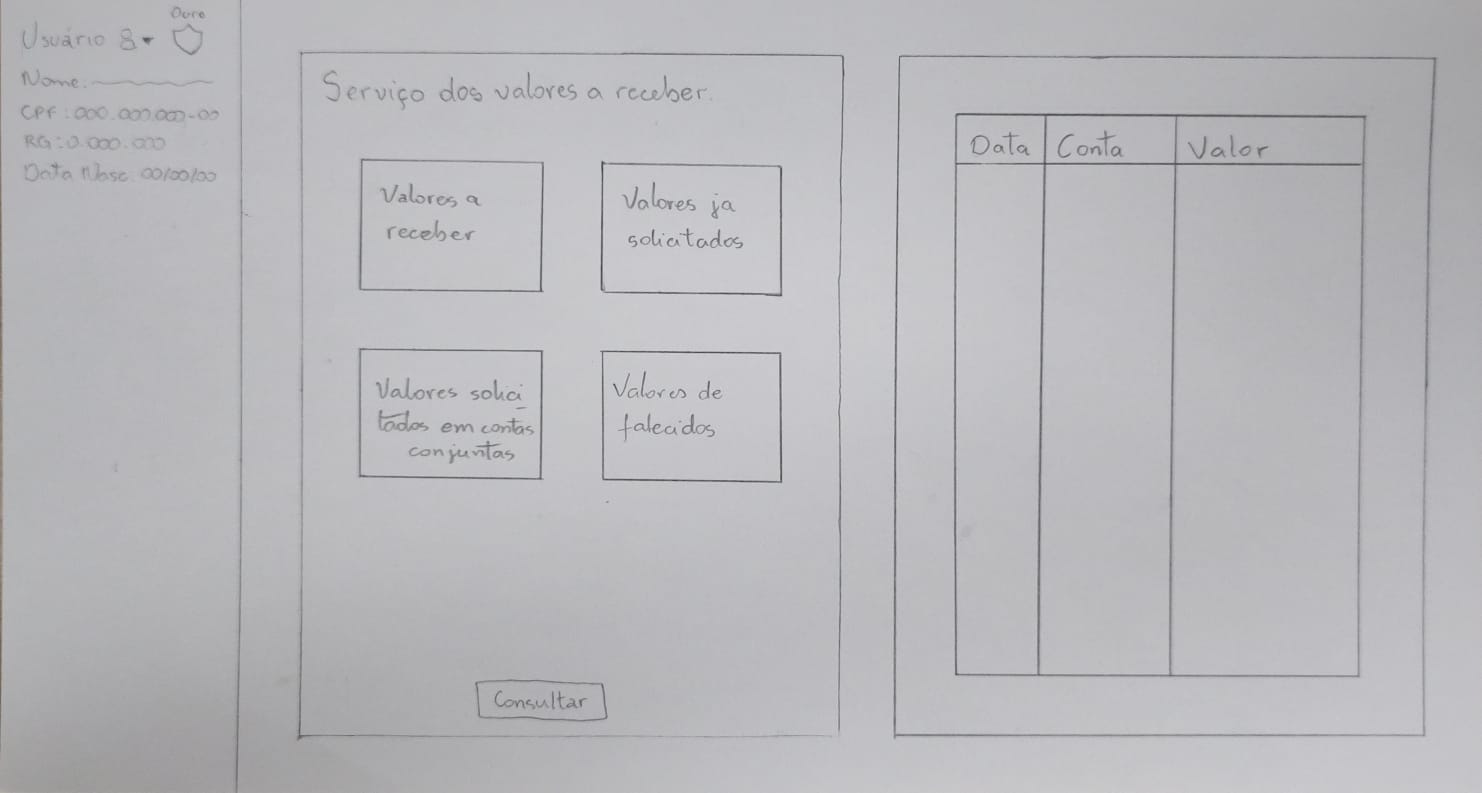 Ouro
Usuário
Nome:
CPF: 000.000.000-00
RG: 0.000.000
Data Nasc. 00/00/00
Serviço dos valores a receber.
Valores a
receber
Valores ja
solicitados
Valores solici
tados em contas
conjuntas
Valores de
falecidos
Consultar
Data Conta Valor